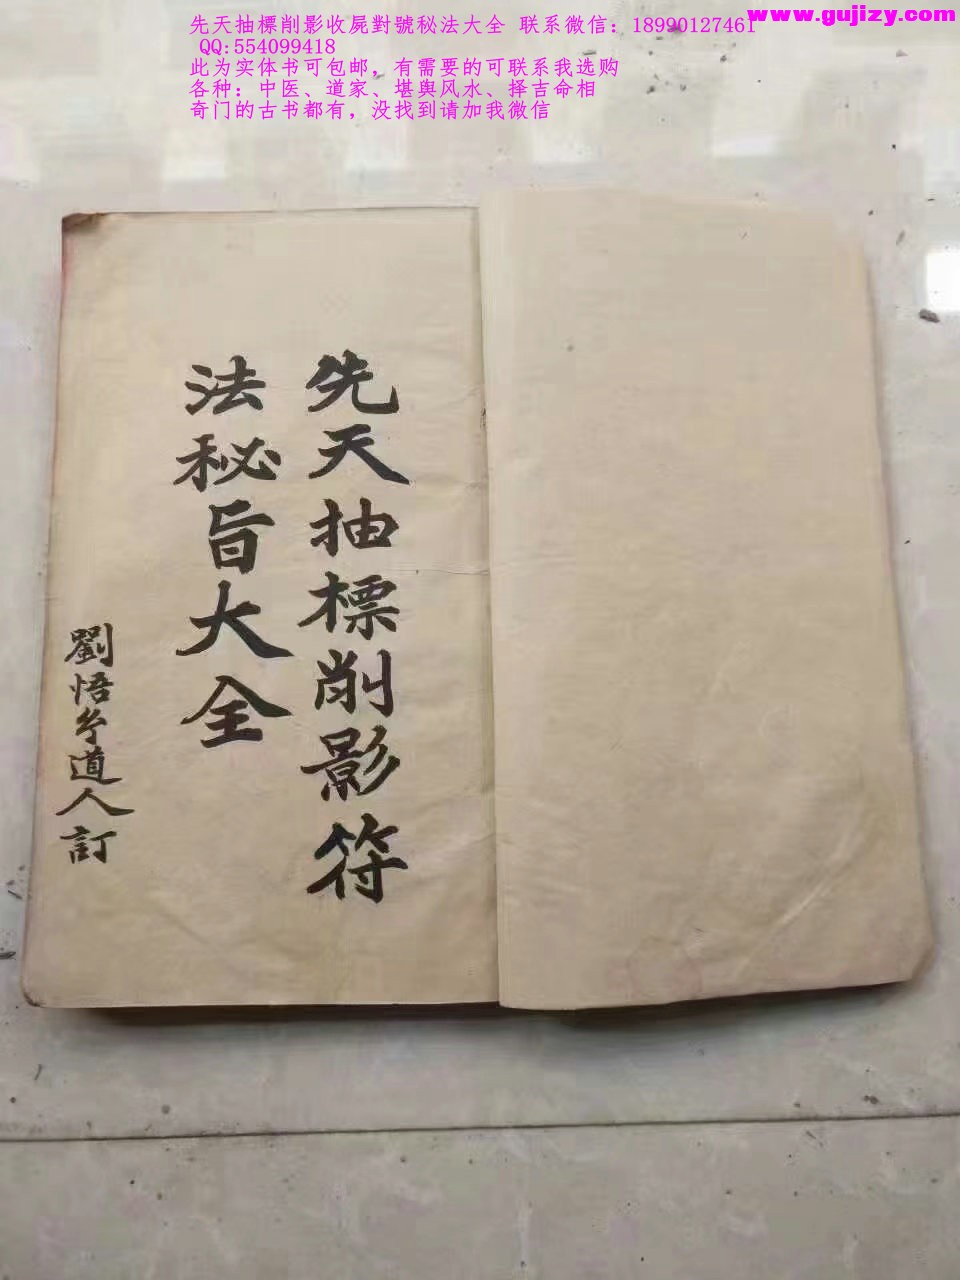 先天抽標削影收屍對號秘法大全 联系微信：18990127461
www.gujizy.com
QQ:554099418
此为实体书可包邮，有需要的可联系我选购
各种：中医、道家、堪舆风水、择吉命相
奇门的古书都有，没找到请加我微信
先天抽標削影符
法秘旨大全
劉悟兮道人訂